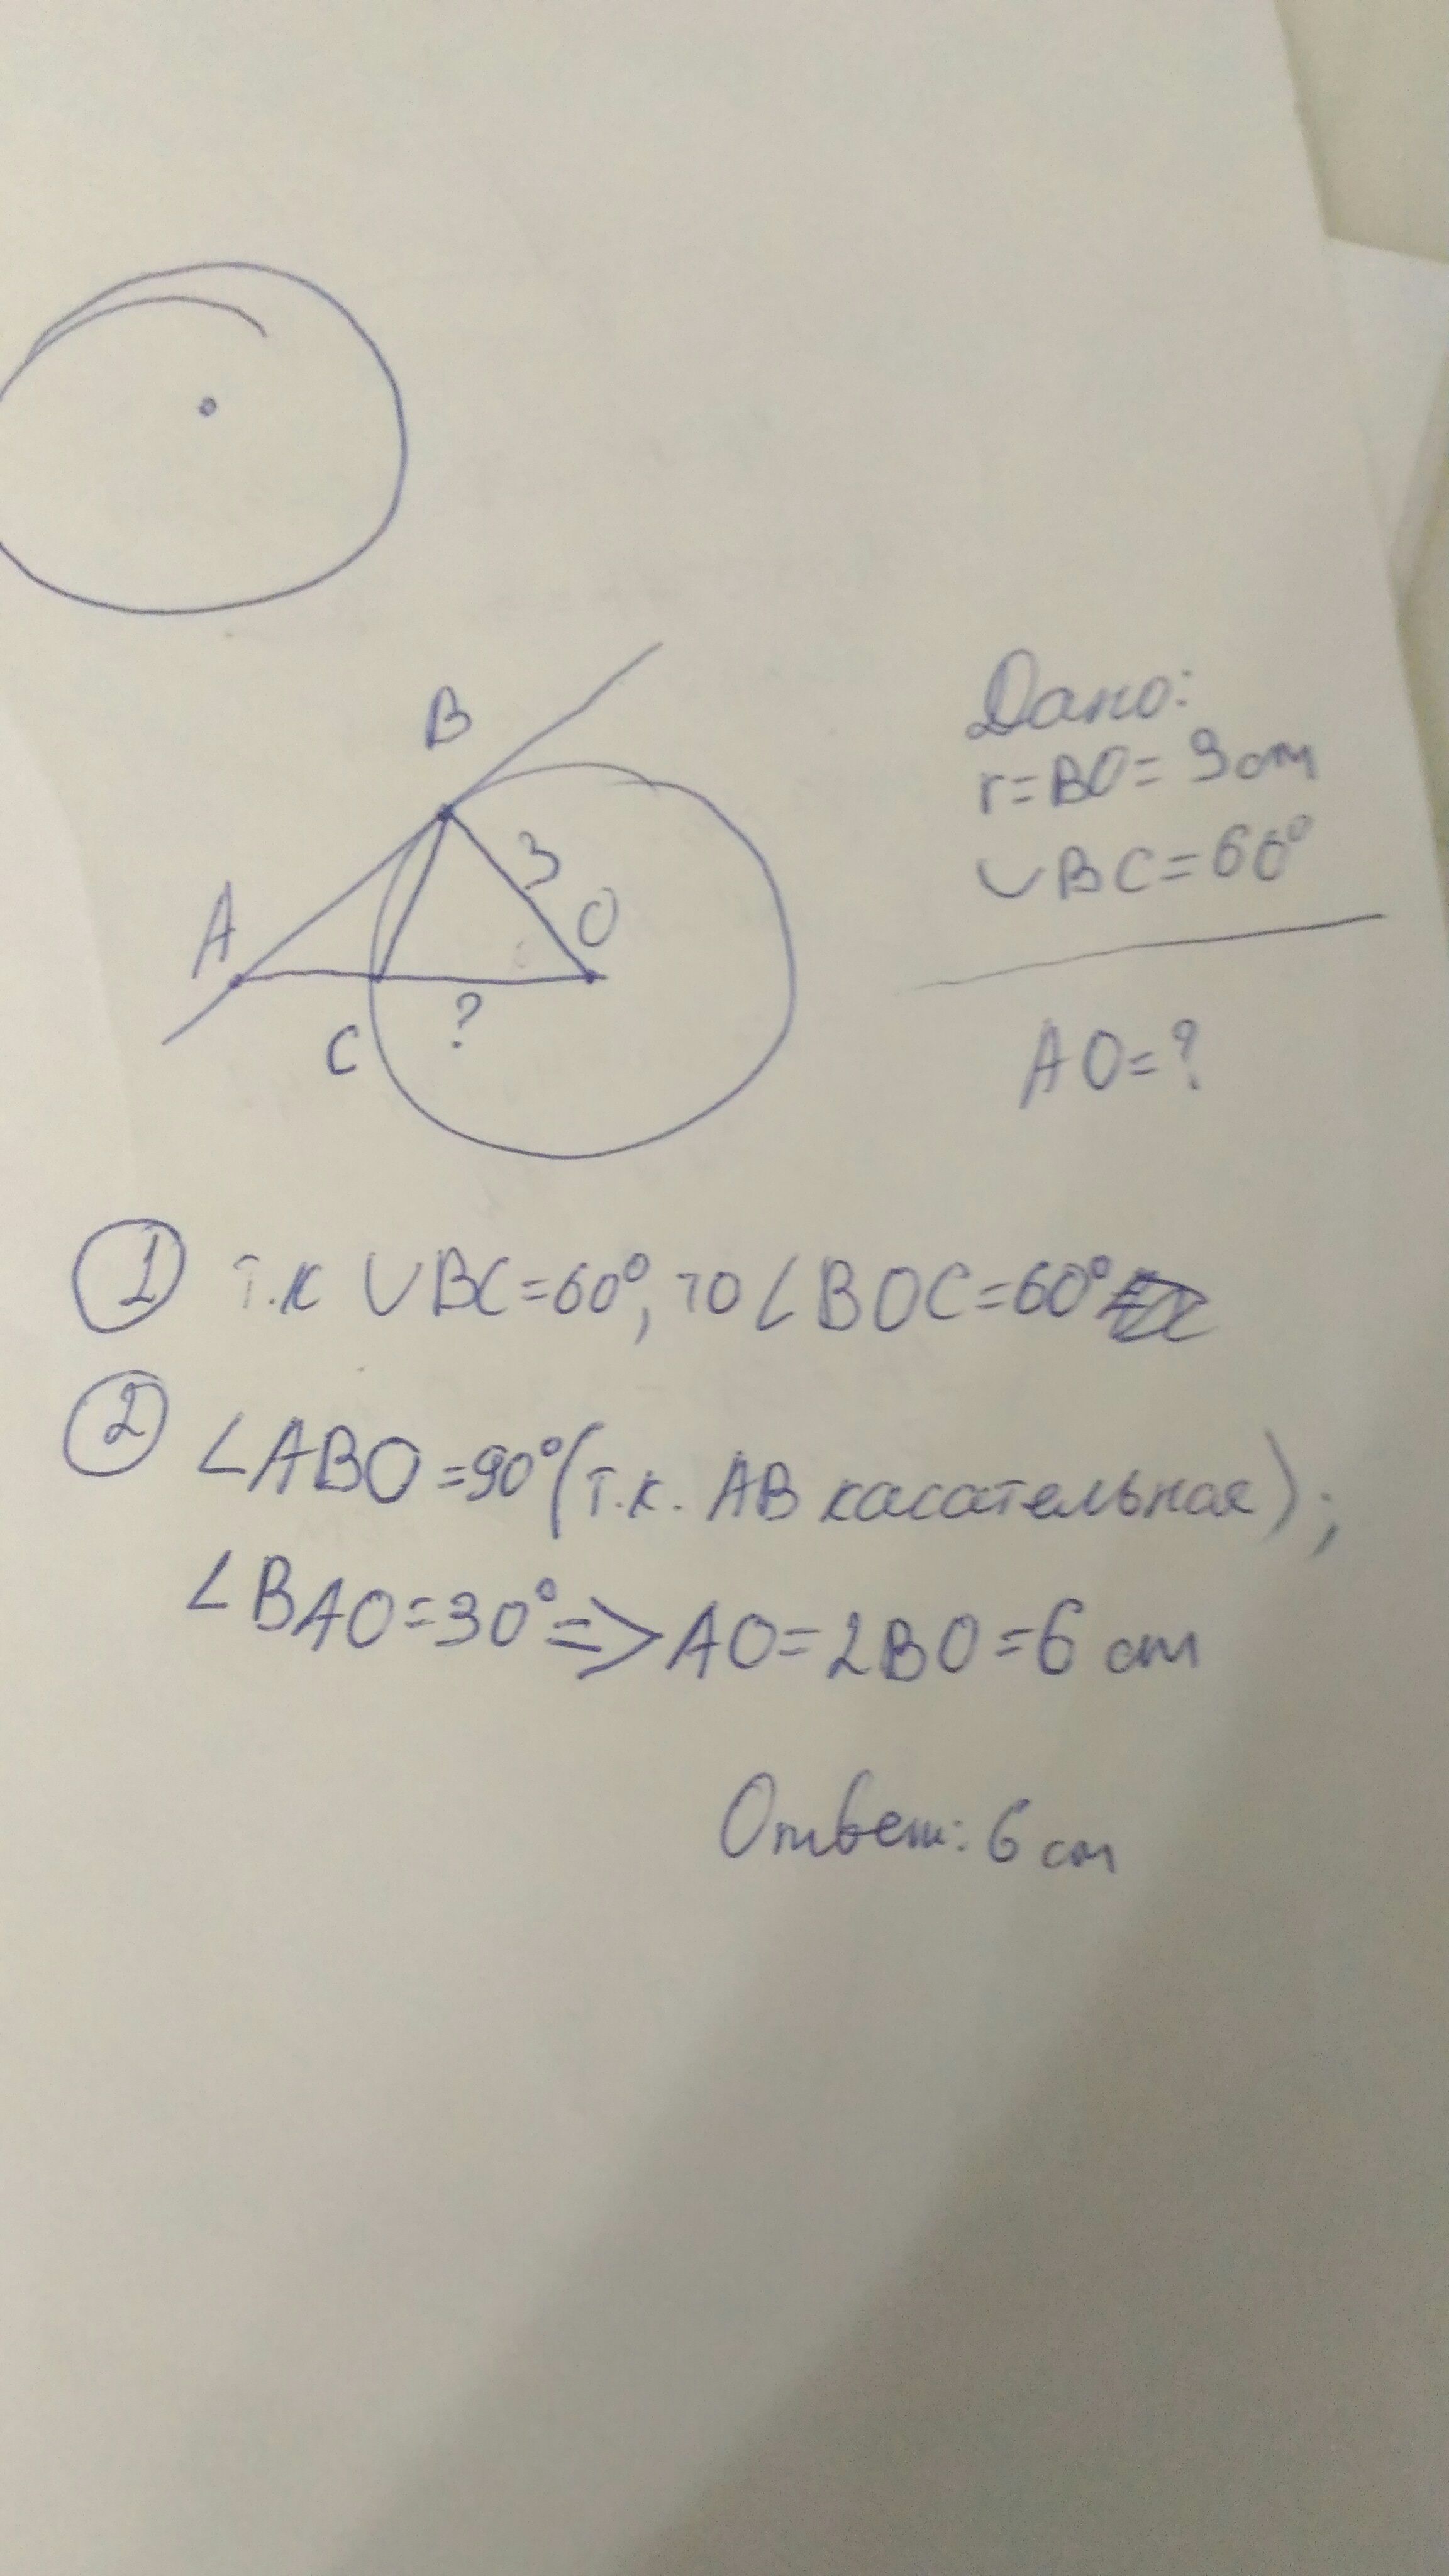 B
3
O
A
?
C
Дано:
r=BO=3cm
◡BC=60°
AO=?
1 т.к ◡BC=60°, то ∠BOC=60°
2 ∠ABO=90° (т.к. AB касательная);
∠BAO=30° => AO=2BO=6 cm
Ответ: 6 cm